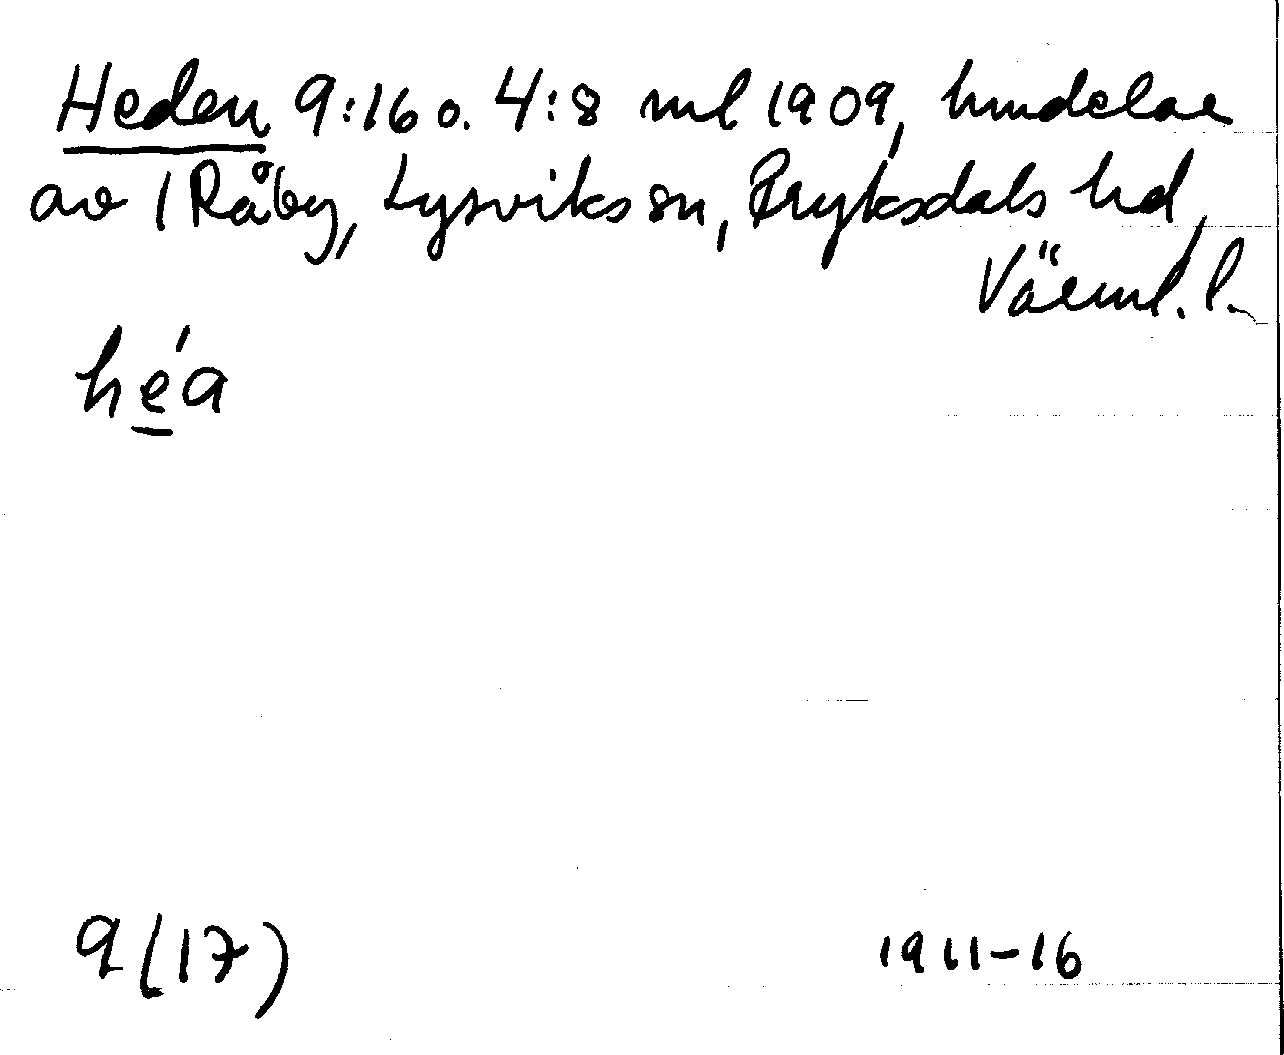 Heden 9:16 o. 4:8 ml 1909, hmdelar
av 1 Råby, Lysviks sn, Fryksdals hd,
Värml. l.
héa
9 (17)
1911-16